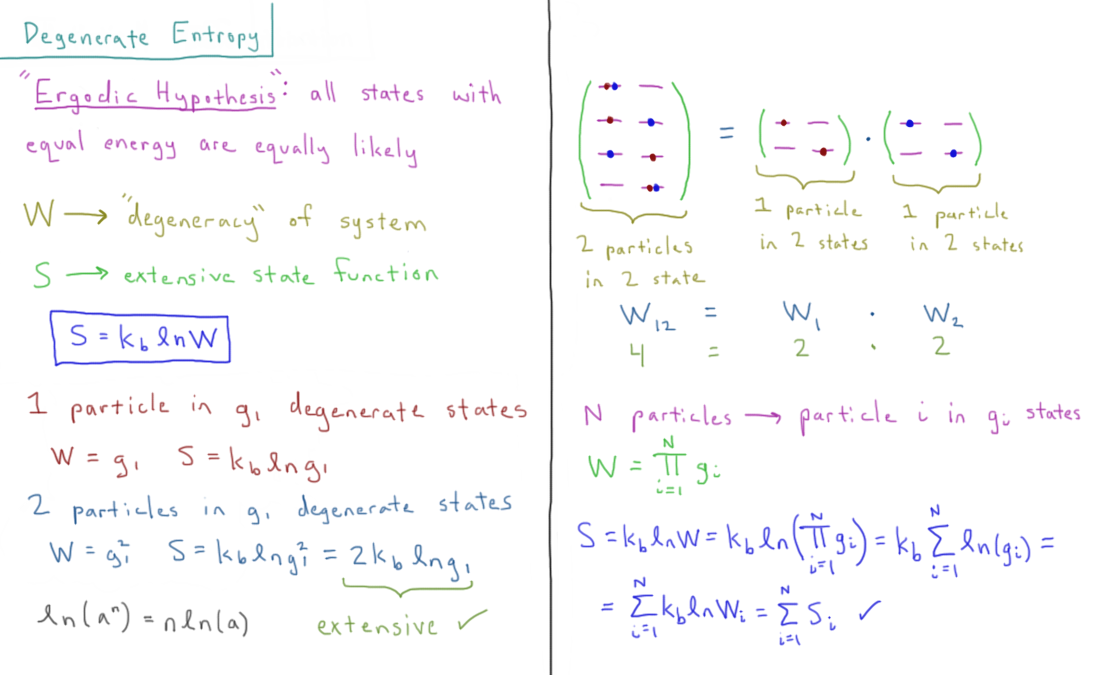 Degenerate Entropy
"Ergodic Hypothesis": all states with
equal energy are equally likely
W → "degeneracy" of system
S → extensive state function
S = k_b ln W
1 particle in g₁ degenerate states
W = g₁ S = k_b ln g₁
2 particles in g₁ degenerate states
W = g₁² S = k_b ln g₁² = 2 k_b ln g₁
ln(aⁿ) = n ln(a) extensive ✓
= ·
2 particles
in 2 state
1 particle
in 2 states
1 particle
in 2 states
W₁₂ = W₁ · W₂
4 = 2 · 2
N particles → particle i in gᵢ states
W = ∏_{i=1}^{N} gᵢ
S = k_b ln W = k_b ln(∏_{i=1}^{N} gᵢ) = k_b ∑_{i=1}^{N} ln(gᵢ) =
= ∑_{i=1}^{N} k_b ln Wᵢ = ∑_{i=1}^{N} Sᵢ ✓